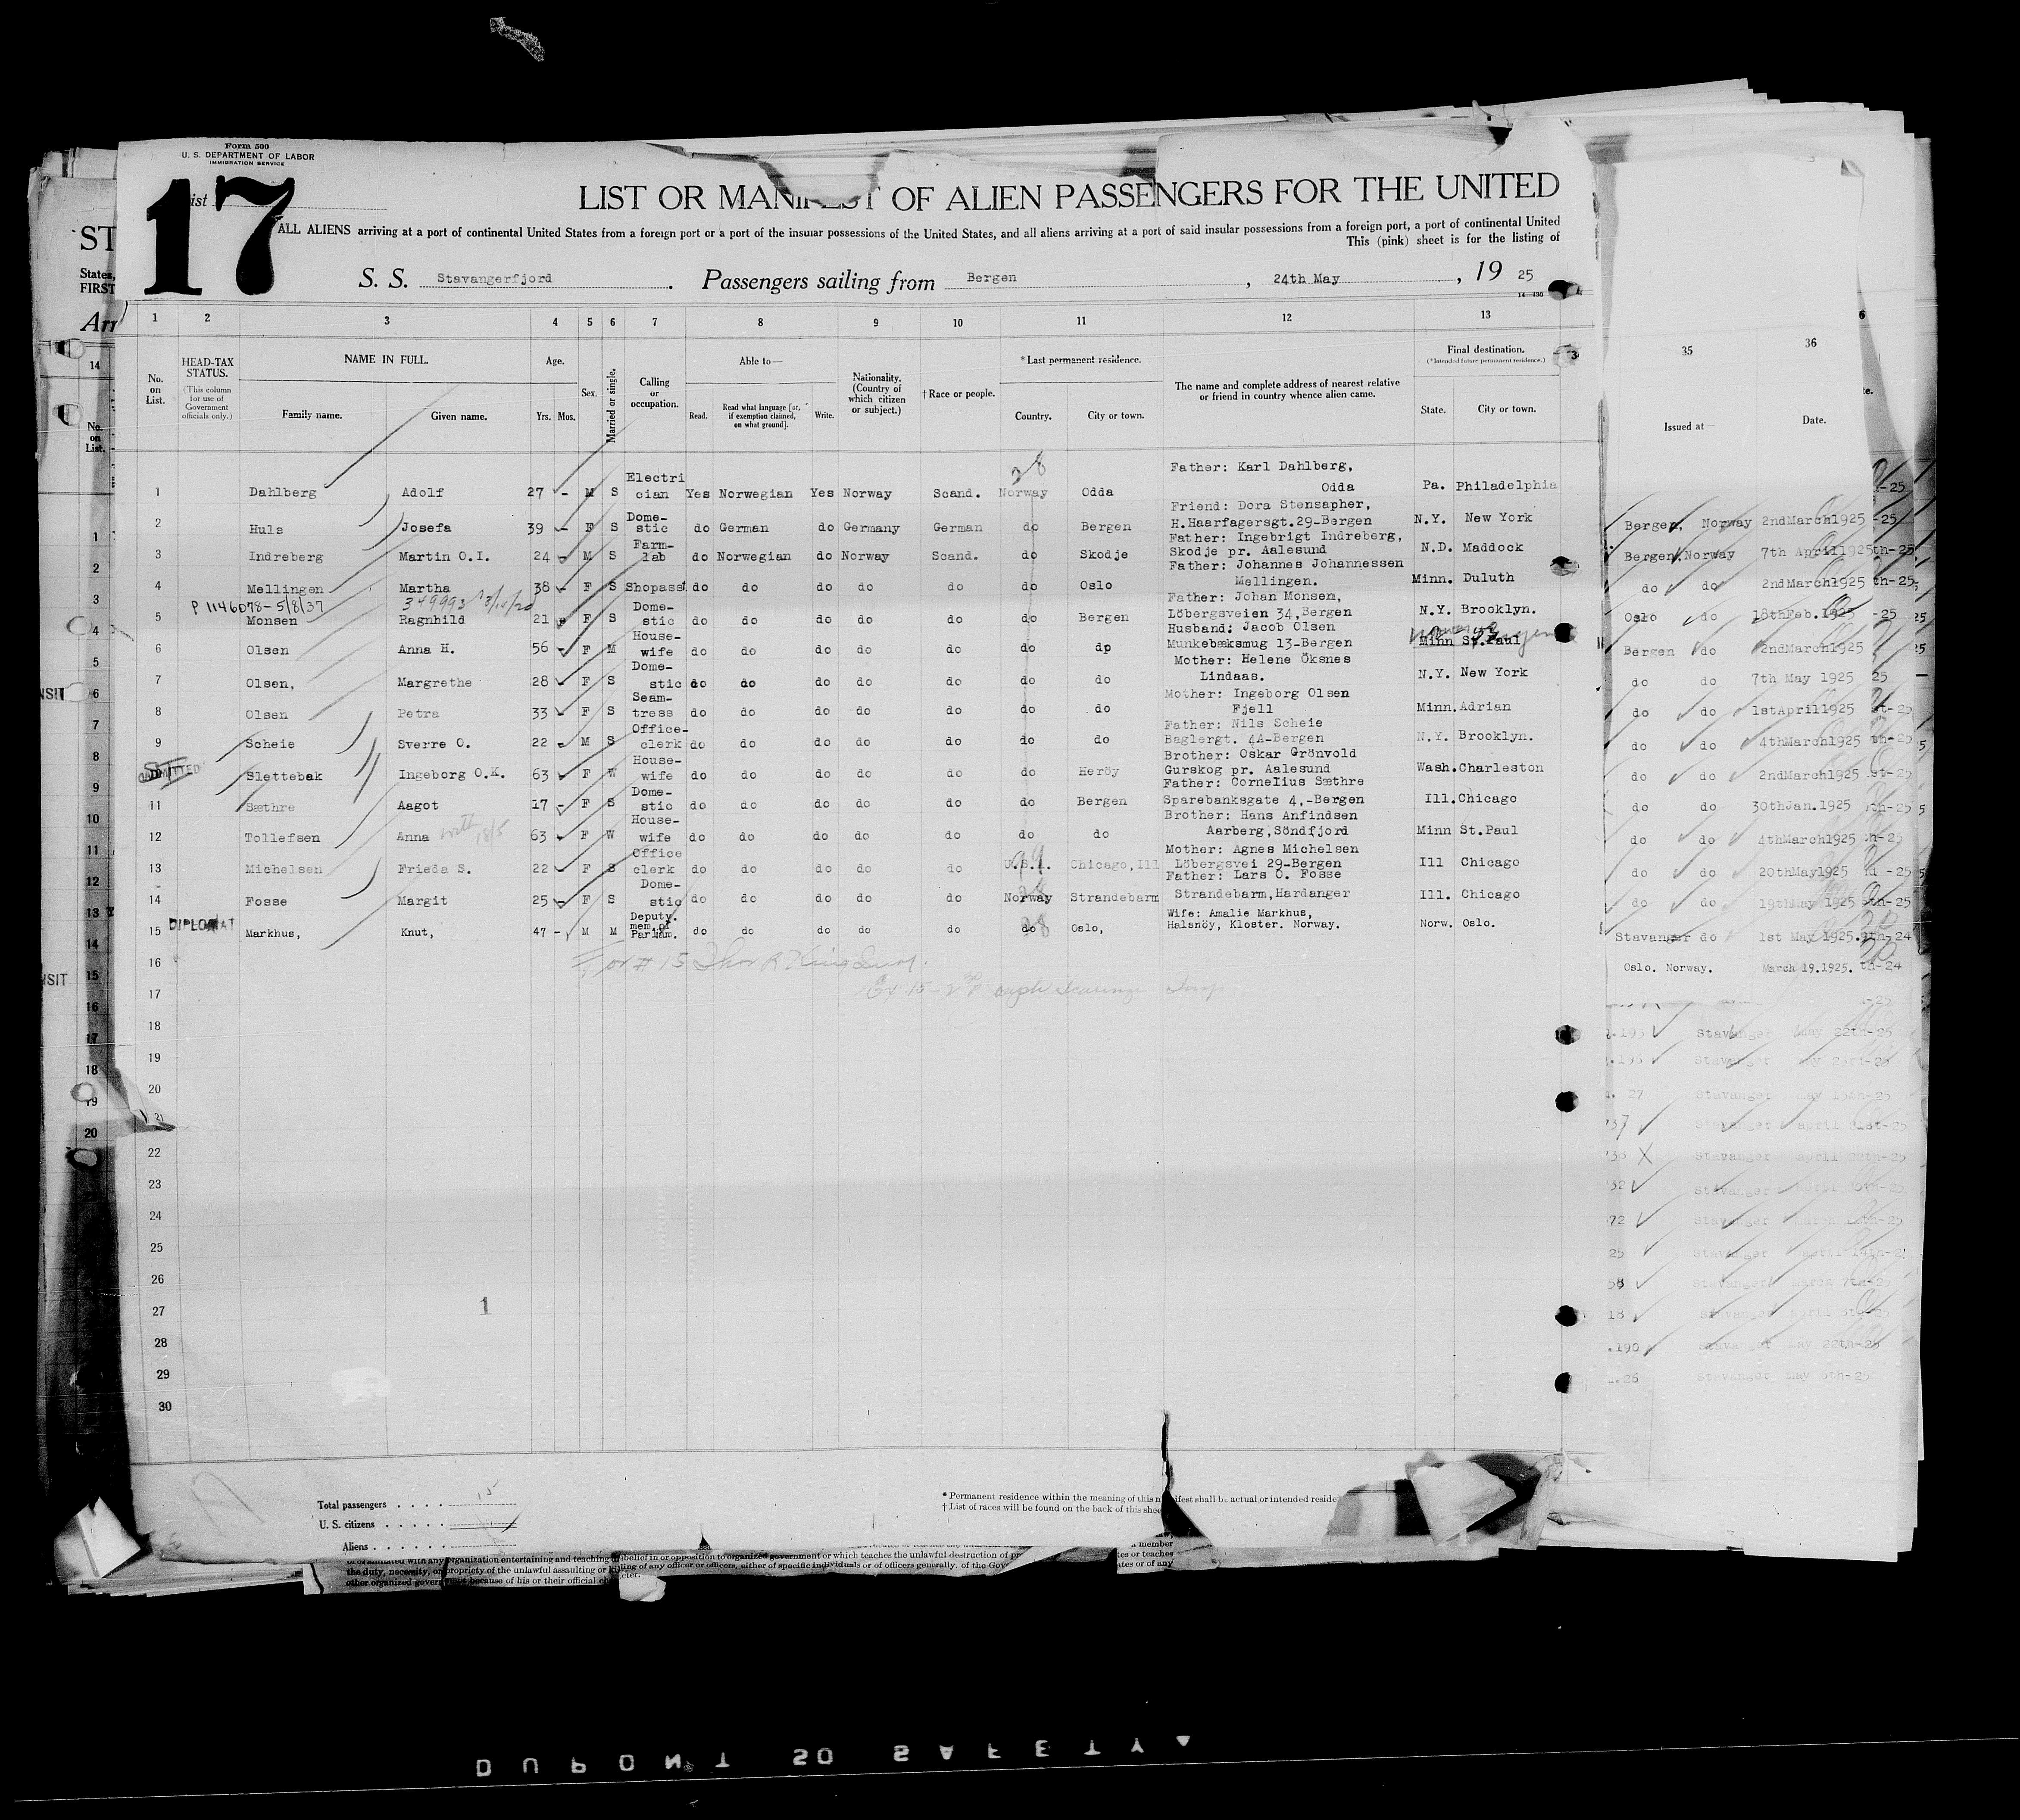 Form 500
U. S. DEPARTMENT OF LABOR
IMMIGRATION SERVICE
17
LIST OR MANIFEST OF ALIEN PASSENGERS FOR THE UNITED
ALL ALIENS arriving at a port of continental United States from a foreign port or a port of the insular possessions of the United States, and all aliens arriving at a port of said insular possessions from a foreign port, a port of continental United
This (pink) sheet is for the listing of
S. S. Stavangerfjord. Passengers sailing from Bergen, 24th May, 19 25
1 2 3 4 5 6 7 8 9 10 11 12 13
No. on List.
HEAD-TAX STATUS.
(This column for use of Government officials only.)
NAME IN FULL.
Family name. Given name.
Age.
Yrs. Mos.
Sex.
Married or single.
Calling or occupation.
Able to—
Read. Read what language [or, if exemption claimed, on what ground]. Write.
Nationality. (Country of which citizen or subject.)
† Race or people.
*Last permanent residence.
Country. City or town.
The name and complete address of nearest relative or friend in country whence alien came.
Final destination.
(*Intended future permanent residence.)
State. City or town.
35 36
Issued at— Date.
28
1 Dahlberg Adolf 27 - M S Electrician Yes Norwegian Yes Norway Scand. Norway Odda Father: Karl Dahlberg, Odda Pa. Philadelphia
2 Huls Josefa 39 - F S Dome-stic do German do Germany German do Bergen Friend: Dora Stensapher, H.Haarfagersgt.29-Bergen N.Y. New York
3 Indreberg Martin O.I. 24 - M S Farm-lab do Norwegian do Norway Scand. do Skodje Father: Ingebrigt Indreberg, Skodje pr. Aalesund N.D. Maddock
4 Mellingen Martha 38 - F S Shopasst do do do do do do Oslo Father: Johannes Johannessen Mellingen. Minn. Duluth
P 1146078-5/8/37
5 Monsen Ragnhild 21 F S Dome-stic do do do do do do Bergen Father: Johan Monsen, Löbergsveien 34, Bergen N.Y. Brooklyn.
6 Olsen Anna H. 56 - F M House-wife do do do do do do do Husband: Jacob Olsen Munkebæksmug 13-Bergen Minn St.Paul
7 Olsen, Margrethe 28 - F S Dome-stic do do do do do do do Mother: Helene Öksnes Lindaas. N.Y. New York
8 Olsen Petra 33 - F S Seam-tress do do do do do do do Mother: Ingeborg Olsen Fjell Minn. Adrian
9 Scheie Sverre O. 22 - M S Office-clerk do do do do do do do Father: Nils Scheie Baglergt. 4A-Bergen N.Y. Brooklyn.
ADMITTED Slettebak Ingeborg O.K. 63 - F W House-wife do do do do do do Heröy Brother: Oskar Grönvold Gurskog pr. Aalesund Wash. Charleston
11 Sæthre Aagot 17 - F S Dome-stic do do do do do do Bergen Father: Cornelius Sæthre Sparebanksgate 4,-Bergen Ill. Chicago
12 Tollefsen Anna 63 - F W House-wife do do do do do do do Brother: Hans Anfindsen Aarberg, Söndfjord Minn St.Paul
13 Michelsen Frieda S. 22 - F S Office clerk do do do do do U.S.A. Chicago, Ill Mother: Agnes Michelsen Löbergsvei 29-Bergen Ill Chicago
14 Fosse Margit 25 - F S Dome-stic do do do do do Norway Strandebarm Father: Lars O. Fosse Strandebarm, Hardanger Ill. Chicago
DIPLOMAT
15 Markhus, Knut, 47 - M M Deputy. mem.of Parliam. do do do do do do Oslo, Wife: Amalie Markhus, Halsnöy, Kloster. Norway. Norw. Oslo.
16
17
18
19
20
21
22
23
24
25
26
27
28
29
30
1
Bergen, Norway 2ndMarch1925
Bergen, Norway 7th April1925
do do 2ndMarch1925
Oslo do 18thFeb.1925
Bergen do 2ndMarch1925
do do 7th May 1925
do do 1stApril1925
do do 4thMarch1925
do do 2ndMarch1925
do do 30thJan.1925
do do 4thMarch1925
do do 20thMay1925
do do 19thMay 1925
Stavanger do 1st May 1925.
Oslo. Norway. March 19.1925.
Stavanger May 22th-25
Total passengers . . . . 15
U. S. citizens . . . . .
Aliens . . . . . . . .
* Permanent residence within the meaning of this manifest shall be actual or intended reside
† List of races will be found on the back of this shee
DUPONT SO SAFETY